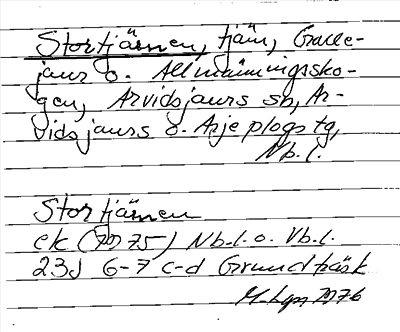 Stortjärnen, tjärn, Gralle-
jaur o. Allmänningssko-
gen, Arvidsjaurs sn, Ar-
vidsjaurs o. Arjeplogs tg,
Nb.l.
Stortjärnen
ek (1975) Nb.l. o. Vb.l.
23J 6-7 c-d Grundträsk
1976